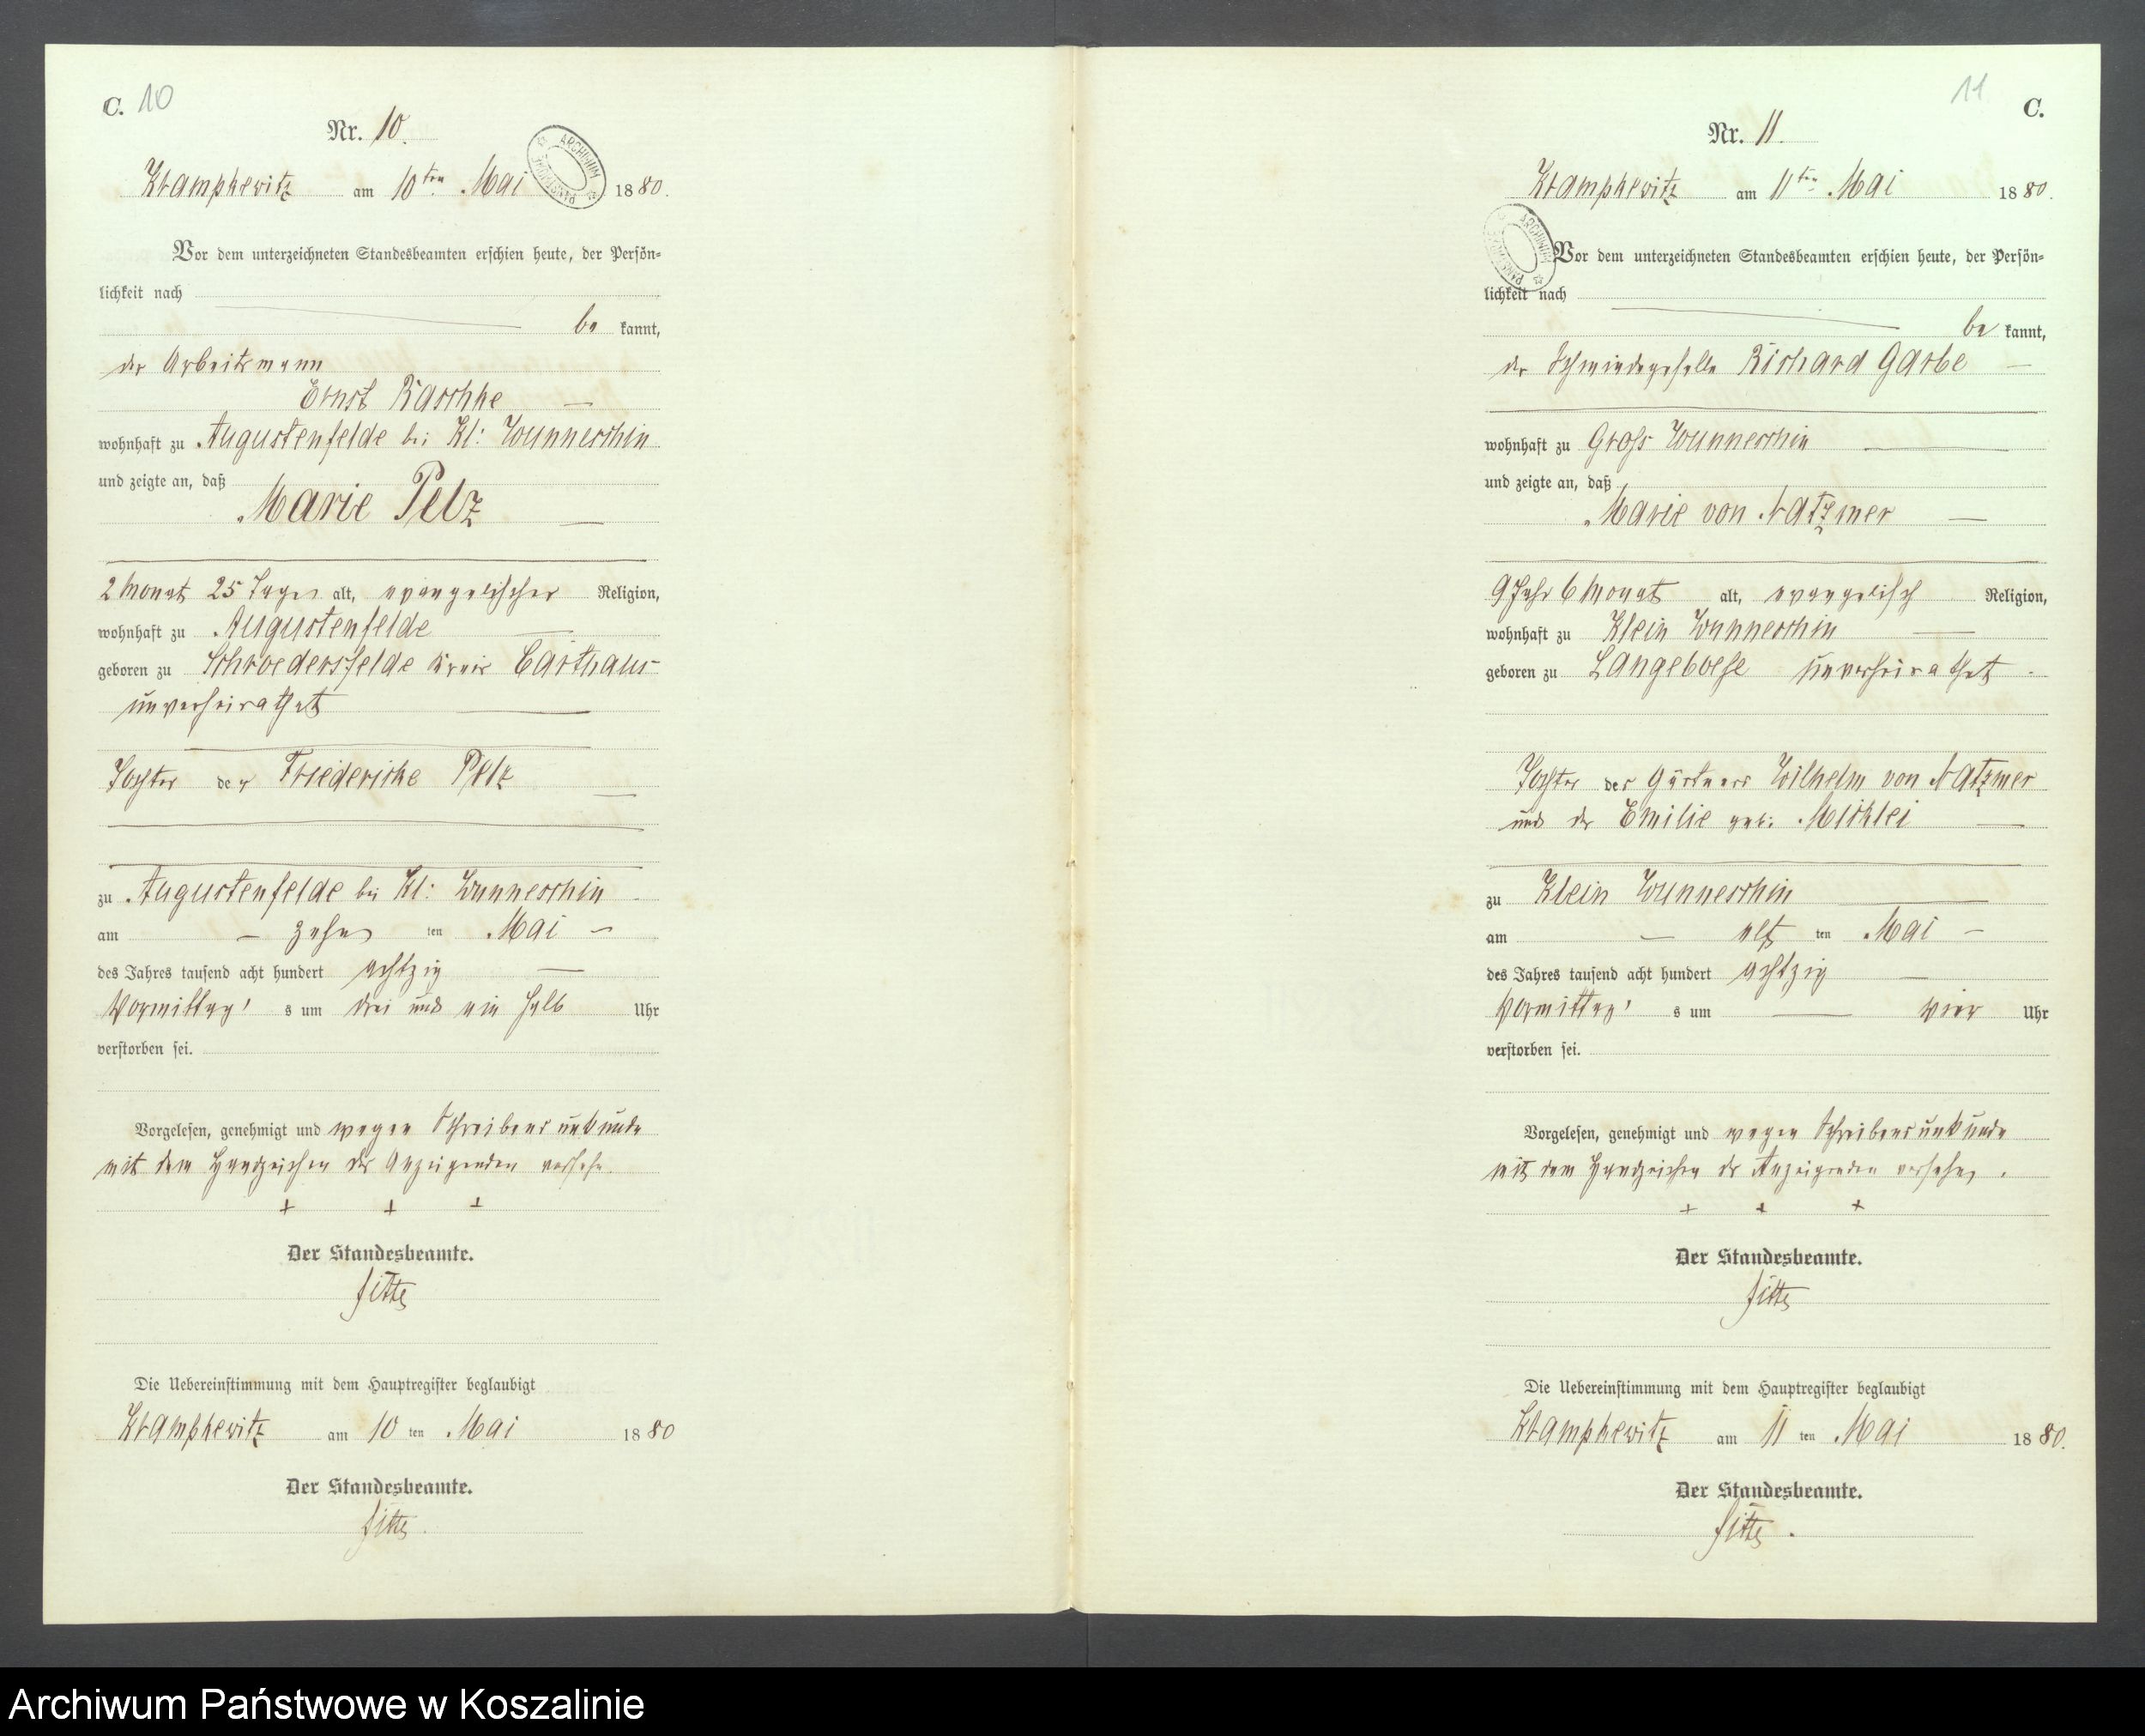 C. 10
Nr. 10.
Krampkewitz am 10ten Mai 1880.
ARCHIWUM PAŃSTWOWE
Vor dem unterzeichneten Standesbeamten erschien heute, der Persön-
lichkeit nach
be kannt,
der Arbeitsmann
Ernst Raschke
wohnhaft zu Augustenfelde bei Kl: Wunneschin
und zeigte an, daß
Marie Pelz
2 Monat 25 Tage alt, evangelischer Religion,
wohnhaft zu Augustenfelde
geboren zu Schroedersfelde Kreis Carthaus
unverheirathet
Tochter der Friedericke Pelz
zu Augustenfelde bei Kl: Wunneschin
am zehn ten Mai
des Jahres tausend acht hundert achtzig
Vormittag's um drei und ein halb Uhr
verstorben sei.
Vorgelesen, genehmigt und wegen Schreibensunkunde
mit dem Handzeichen des Anzeigenden versehn.
+ + +
Der Standesbeamte.
Die Uebereinstimmung mit dem Hauptregister beglaubigt
Krampkewitz am 10 ten Mai 1880
Der Standesbeamte.
11 C.
Nr. 11.
Krampkewitz am 11ten Mai 1880.
ARCHIWUM PAŃSTWOWE
Vor dem unterzeichneten Standesbeamten erschien heute, der Persön-
lichkeit nach
be kannt,
der Schmiedegeselle Richard Garbe
wohnhaft zu Gross Wunneschin
und zeigte an, daß
Marie von Natzmer
9 Jahr 6 Monat alt, evangelisch Religion,
wohnhaft zu Klein Wunneschin
geboren zu Langeboese unverheirathet
Tochter des Gärtners Wilhelm von Natzmer
und der Emilie geb:
zu Klein Wunneschin
am elf ten Mai
des Jahres tausend acht hundert achtzig
Vormittag's um vier Uhr
verstorben sei.
Vorgelesen, genehmigt und wegen Schreibensunkunde
mit dem Handzeichen des Anzeigenden versehen.
+ + +
Der Standesbeamte.
Die Uebereinstimmung mit dem Hauptregister beglaubigt
Krampkewitz am 11 ten Mai 1880.
Der Standesbeamte.
Archiwum Państwowe w Koszalinie